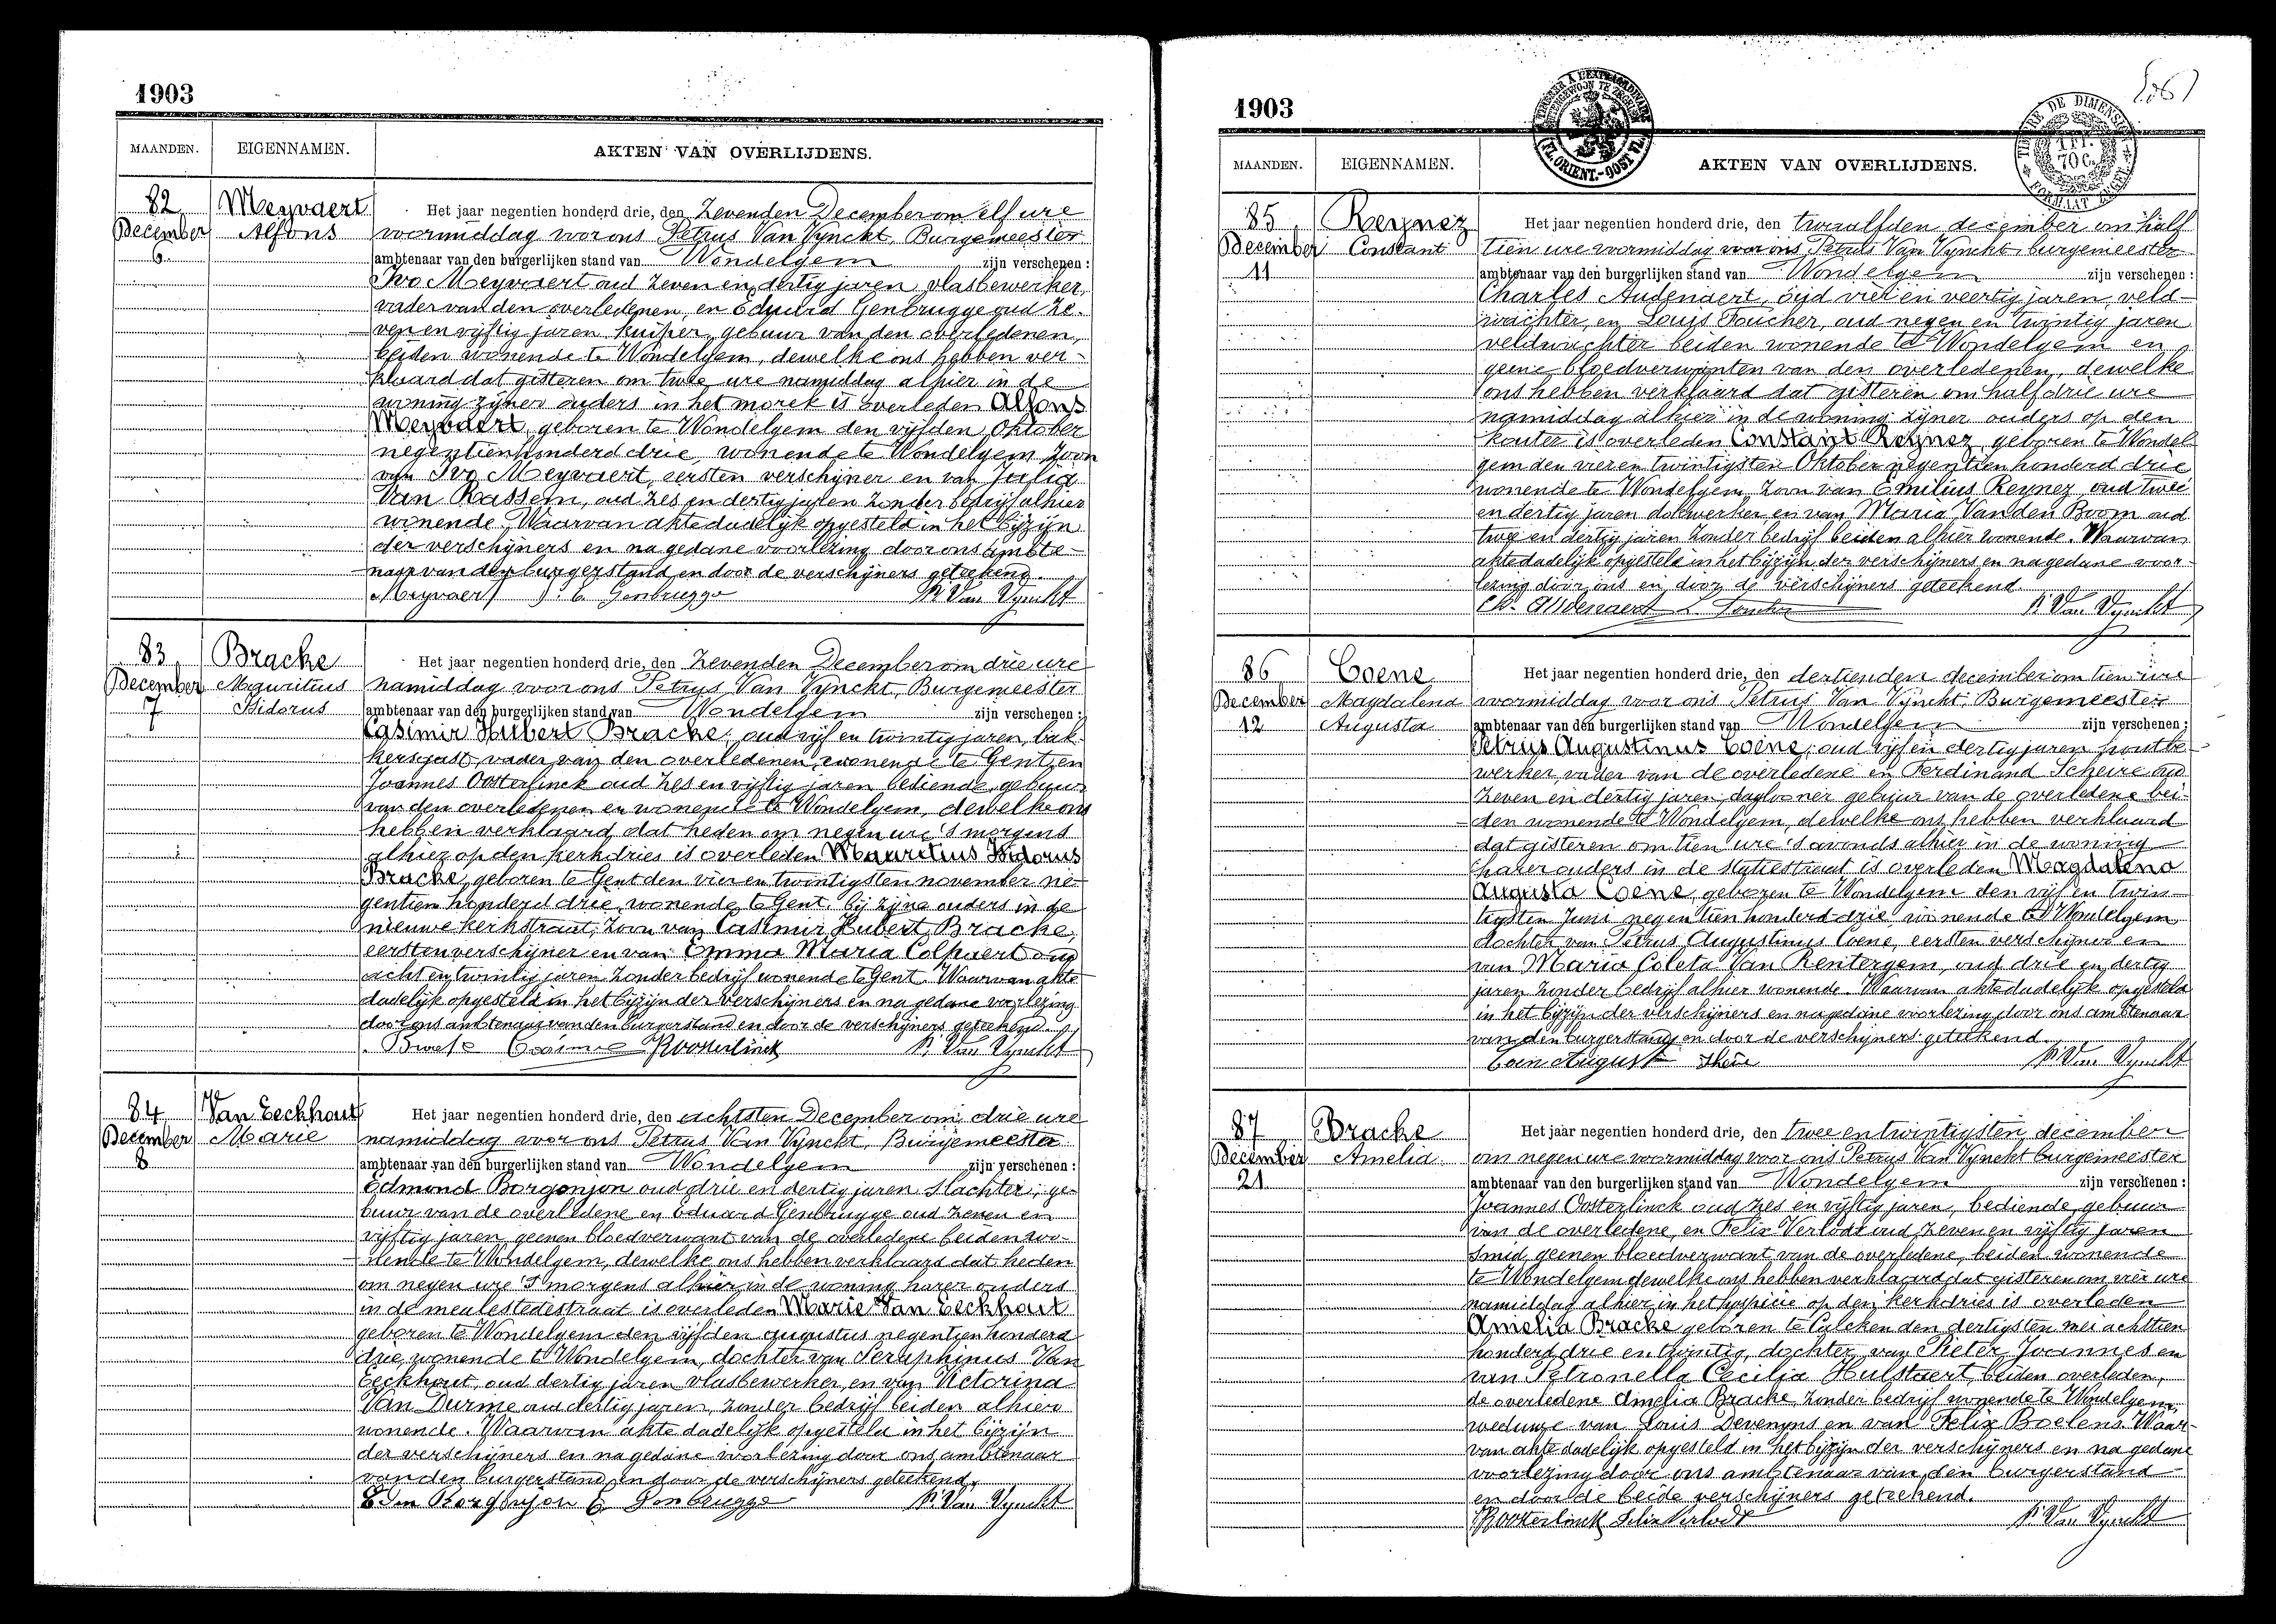 1903
MAANDEN. EIGENNAMEN. AKTEN VAN OVERLIJDENS.
82 Meyvaert Het jaar negentien honderd drie, den Zevenden December om elf ure
December Alfons voormiddag voor ons Petrus Van Vynckt, Burgemeester
6 ambtenaar van den burgerlijken stand van Wondelgem zijn verschenen :
Ivo Meyvaert oud zeven en dertig jaren vlasbewerker,
vader van den overledenen, en Eduard Genbrugge oud ze-
ven en vijftig jaren kuiper, gebuur van den overledenen,
beiden wonende te Wondelgem, dewelke ons hebben ver-
klaard dat gisteren om twee ure namiddag alhier in de
woning zijner ouders in het morek is overleden Alfons
Meyvaert, geboren te Wondelgem den vijfden Oktober
negentienhonderd drie, wonende te Wondelgem zoon
van Ivo Meyvaert, eersten verschijner en van Julia
Van Rassem, oud zes en dertig jaren zonder bedrijf alhier
wonende. Waarvan akte dadelijk opgesteld in het bijzijn
der verschijners en na gedane voorlezing door ons ambte-
naar van den burgerstand en door de verschijners geteekend.
Meyvaert E Genbrugge P. Van Vynckt
83 Bracke Het jaar negentien honderd drie, den Zevenden December om drie ure
December Mauritius namiddag voor ons Petrus Van Vynckt, Burgemeester
7 Isidorus ambtenaar van den burgerlijken stand van Wondelgem zijn verschenen :
Casimir Hubert Bracke, oud vijf en twintig jaren, bak-
kersgast, vader van den overledenen, wonende te Gent en
Joannes Oosterlinck oud zes en vijftig jaren bediende, gebuur
van den overledenen en wonende te Wondelgem, dewelke ons
hebben verklaard dat heden om negen ure 's morgens
alhier op den kerkdries is overleden Mauritius Isidorus
Bracke, geboren te Gent den vier en twintigsten november ne-
gentien honderd drie, wonende te Gent, bij zijne ouders in de
nieuwe kerkstraat, zoon van Casimir Hubert Bracke,
eersten verschijner en van Emma Maria Colpaert oud
acht en twintig jaren zonder bedrijf wonende te Gent. Waarvan akte
dadelijk opgesteld in het bijzijn der verschijners en na gedane voorlezing
door ons ambtenaar van den burgerstand en door de verschijners geteekend.
Casimir JOosterlinck P. Van Vynckt
84 Van Eeckhout Het jaar negentien honderd drie, den achtsten December om drie ure
December Marie namiddag voor ons Petrus Van Vynckt, Burgemeester
8 ambtenaar van den burgerlijken stand van Wondelgem zijn verschenen :
Edmond Borgonjon oud drie en dertig jaren slachter, ge-
buur van de overledene en Eduard Genbrugge oud zeven en
vijftig jaren, geenen bloedverwant van de overledene beiden wo-
nende te Wondelgem, dewelke ons hebben verklaard dat heden
om negen ure 's morgens alhier in de woning harer ouders
in de meulestedestraat is overleden Marie Van Eeckhout
geboren te Wondelgem den vijfden augustus negentien honderd
drie, wonende te Wondelgem, dochter van Seraphinus Van
Eeckhout, oud dertig jaren vlasbewerker, en van Victorina
Van Durme oud dertig jaren, zonder bedrijf beiden alhier
wonende. Waarvan akte dadelijk opgesteld in het bijzijn
der verschijners en na gedane voorlezing door ons ambtenaar
van den burgerstand en door de verschijners geteekend.
Edm Borgonjon E Genbrugge P. Van Vynckt
1903
TIMBRE DE DIMENSION
70 C.
FL. ORIENT.-OOST VL.
MAANDEN. EIGENNAMEN. AKTEN VAN OVERLIJDENS.
85 Reynez Het jaar negentien honderd drie, den twaalfden december om half
December Constant tien ure voormiddag voor ons Petrus Van Vynckt, burgemeester
11 ambtenaar van den burgerlijken stand van Wondelgem zijn verschenen :
Charles Audenaert, oud vier en veertig jaren, veld-
wachter, en Louis Foucher, oud negen en twintig jaren
veldwachter beiden wonende te Wondelgem en
geene bloedverwanten van den overledenen, dewelke
ons hebben verklaard dat gisteren om half drie ure
namiddag alhier in de woning zijner ouders op den
kouter is overleden Constant Reynez geboren te Wondel-
gem den vier en twintigsten Oktober negentien honderd drie
wonende te Wondelgem, zoon van Emilius Reynez, oud twee
en dertig jaren dokwerker en van Maria Van den Boom oud
twee en dertig jaren zonder bedrijf beiden alhier wonende. Waarvan
akte dadelijk opgesteld in het bijzijn der verschijners en na gedane voor-
lezing door ons en door de verschijners geteekend.
Ch. Audenaert L Foucher P. Van Vynckt
86 Coene Het jaar negentien honderd drie, den dertienden december om tien ure
December Magdalena voormiddag voor ons Petrus Van Vynckt, Burgemeester
12 Augusta ambtenaar van den burgerlijken stand van Wondelgem zijn verschenen :
Petrus Augustinus Coene, oud vijf en dertig jaren houtbe-
werker, vader van de overledene en Ferdinand Scheire oud
zeven en dertig jaren, daglooner gebuur van de overledene bei-
den wonende te Wondelgem, dewelke ons hebben verklaard
dat gisteren om tien ure 's avonds alhier in de woning
harer ouders in de statiestraat is overleden Magdalena
Augusta Coene, geboren te Wondelgem den vijf en twin-
tigsten Juni negentien honderd drie, wonende te Wondelgem
dochter van Petrus Augustinus Coene, eersten verschijner en
van Maria Coleta Van Rentergem, oud drie en dertig
jaren zonder bedrijf alhier wonende. Waarvan akte dadelijk opgesteld
in het bijzijn der verschijners en na gedane voorlezing door ons ambtenaar
van den burgerstand en door de verschijners geteekend.
Coen August P. Van Vynckt
87 Bracke Het jaar negentien honderd drie, den twee en twintigsten december
December Amelia om negen ure voormiddag voor ons Petrus Van Vynckt burgemeester
21 ambtenaar van den burgerlijken stand van Wondelgem zijn verschenen :
Joannes Oosterlinck oud zes en vijftig jaren, bediende, gebuur
van de overledene, en Felix Verlodt oud zeven en vijftig jaren
smid, geenen bloedverwant van de overledene, beiden wonende
te Wondelgem dewelke ons hebben verklaard dat gisteren om vier ure
namiddag alhier in het hospicie op den kerkdries is overleden
Amelia Bracke geboren te Calcken den dertigsten mei achttien
honderd drie en twintig, dochter van Pieter Joannes en
van Petronella Cecilia Hulstaert, beiden overleden,
de overledene Amelia Bracke, zonder bedrijf wonende te Wondelgem,
weduwe van Louis Devenyns en van Felix Boelens. Waar-
van akte dadelijk opgesteld in het bijzijn der verschijners en na gedane
voorlezing door ons ambtenaar van den burgerstand
en door de beide verschijners geteekend.
JOosterlinck Felix Verlodt P. Van Vynckt